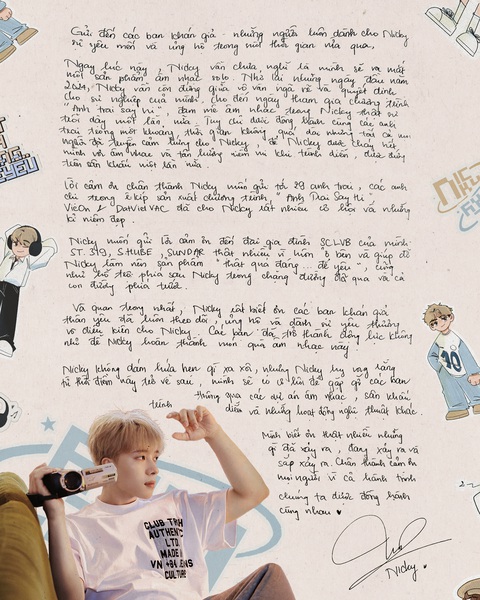 Gửi đến các bạn khán giả - những người luôn dành cho Nicky
sự yêu mến và ủng hộ trong suốt thời gian vừa qua,
Ngay lúc này, Nicky vẫn chưa nghĩ là mình sẽ ra mắt
một sản phẩm âm nhạc solo. Nhớ lại những ngày đầu năm
2024, Nicky vẫn còn đứng giữa vô vàn ngã rẽ và quyết định
cho sự nghiệp của mình, cho đến ngày tham gia chương trình
"Anh trai say hi", đam mê âm nhạc trong Nicky thật sự
trỗi dậy một lần nữa. Tuy chỉ được đồng hành cùng các anh
trai trong một khoảng thời gian không quá dài nhưng tất cả mọi
người đã truyền cảm hứng cho Nicky, để Nicky được cháy hết
mình với âm nhạc và tận hưởng niềm vui khi trình diễn, được đứng
trên sân khấu một lần nữa.
Lời cảm ơn chân thành Nicky muốn gửi tới 29 anh trai, các anh
chị trong ê kíp sản xuất chương trình "Anh Trai Say Hi",
VieOn & DatVietVAC đã cho Nicky rất nhiều cơ hội và những
kỉ niệm đẹp.
Nicky muốn gửi lời cảm ơn đến đại gia đình SCLUB của mình,
ST.319, S.HUBE, SUNDAR thật nhiều vì luôn ở bên và giúp đỡ
Nicky làm nên sản phẩm "thật quá đáng... để yêu", cũng
như dõi theo phía sau Nicky trong chặng đường đã qua và cả
con đường phía trước.
Và quan trọng nhất, Nicky rất biết ơn các bạn khán giả
thân yêu đã luôn theo dõi, ủng hộ và dành sự yêu thương
vô điều kiện cho Nicky. Các bạn đã trở thành động lực không
nhỏ để Nicky hoàn thành món quà âm nhạc này
Nicky không dám hứa hẹn gì xa xôi, nhưng Nicky hy vọng rằng
từ thời điểm này trở về sau, mình sẽ có cơ hội để gặp gỡ các bạn
thông qua các dự án âm nhạc, sân khấu
trình diễn và những hoạt động nghệ thuật khác.
Mình biết ơn thật nhiều những
gì đã xảy ra, đang xảy ra và
sắp xảy ra. Chân thành cảm ơn
mọi người vì cả hành trình
chúng ta được đồng hành
cùng nhau ♥
Nicky
CLUB
AUTHENTIC
LTD
MADE
VN +84
CULTURE
10